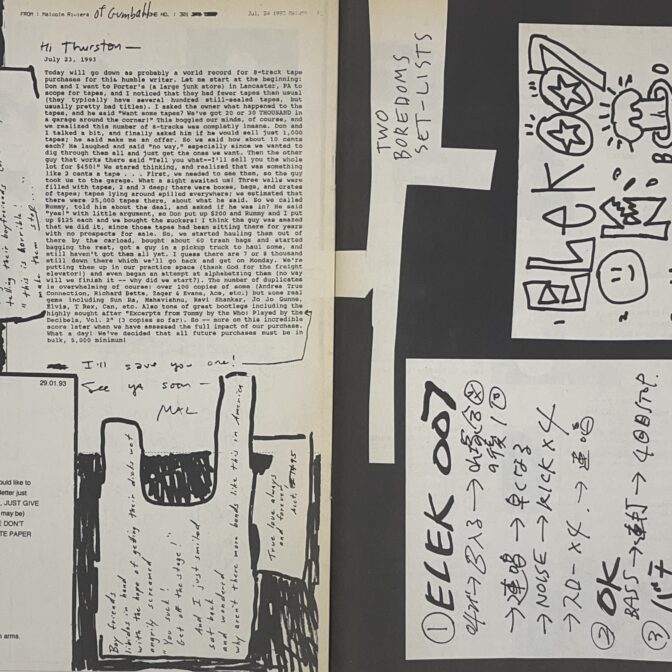 FROM : Malcolm Riviera of Gumball
Jul. 24 1993
Hi Thurston—
July 23, 1993
Today will go down as probably a world record for 8-track tape
purchases for this humble writer. Let me start at the beginning:
Don and I want to Porter's (a large junk store) in Lancaster, PA to
scope for tapes, and I noticed that they had fewer tapes than usual
(they typically have several hundred still-sealed tapes, but
usually pretty bad titles). I asked the owner what happened to the
tapes, and he said "Want some tapes? We've got 20 or 30 THOUSAND in
a garage around the corner!" This boggled our minds, of course, and
we realised this number of 8-tracks was completly insane. Don and
I talked a bit, and finally asked him if he would sell just 1,000
tapes; he said make me an offer. So we said how about 10 cents
each? He laughed and said "no way," especially since we wanted to
dig through them all and just get the ones we want. Then the other
guy that works there said "Tell you what--I'll sell you the whole
lot for $450!" We stared thinking, and realised that was something
like 2 cents a tape . . . First, we needed to see them, so the guy
took us to the garage. What a sight awaited us! Three walls were
filled with tapes, 2 and 3 deep; there were boxes, bags, and crates
of tapes; tapes lying around spilled everywhere; we estimated that
there were 25,000 tapes there, about what he said. So we called
Rummy, told him about the deal, and asked if he was in? He said
"yes!" with little argument, so Don put up $200 and Rummy and I put
up $125 each and we bought the suckers! I think the guy was amazed
that we did it, since those tapes had been sitting there for years
with no prospects for sale. So, we started hauling them out of
there by the carload, bought about 60 trash bags and started
bagging the rest, got a guy in a pickup truck to haul some, and
still haven't got them all yet. I guess there are 7 or 8 thousand
still down there which we'll go back and get on Monday. We're
putting them up in our practice space (thank God for the freight
elevator!) and even began an attempt at alphabetting them (no way
will we finish it -- why did we start?). The number of duplicates
is overwhelming of course: over 100 copies of some (Andrea True
Connection, Richard Betts, Zager & Evans, Ace, etc.) but some real
gems including Sun Ra, Mahavishnu, Ravi Shankar, Jo Jo Gunne,
Elvis, T Rex, Can, etc. Also tons of great bootlegs including the
highly sought after "Excerpts from Tommy by the Who: Played by the
Decibels, Vol. 2" (3 copies so far). So -- more on this incredible
score later when we have assessed the full impact of our purchase.
What a day! We've decided that all future purchases must be in
bulk, 5,000 minimum!
I'll save you one!
See ya soon—
MAL
telling their boyfriends
"this is horrible!
make them stop..."
29.01.93
ould like to
letter just
, JUST GIVE
may be)
E DON'T
TE PAPER
n arms.
Boy friends
libidos in hand
with the hope of getting their dicks wet
angrily screamed
"You suck!
Get off the stage!"
And I just smiled
sat back
and wondered
why aren't there more bands like this in America
True love always
and forever
TWO
BOREDOMS
SET-LISTS
1 ELEK
2
① ELEK 007
→ 連唱 → 早くなる
→ NOISE → KICK × 4
→ スロー × 4
② OK
BASS → 連打 → 4回目STOP.
③